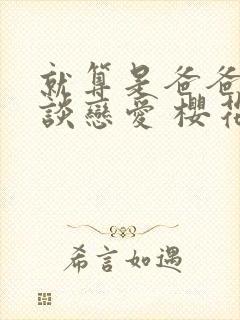 就算是爸爸
談戀愛 櫻花
希言如遇